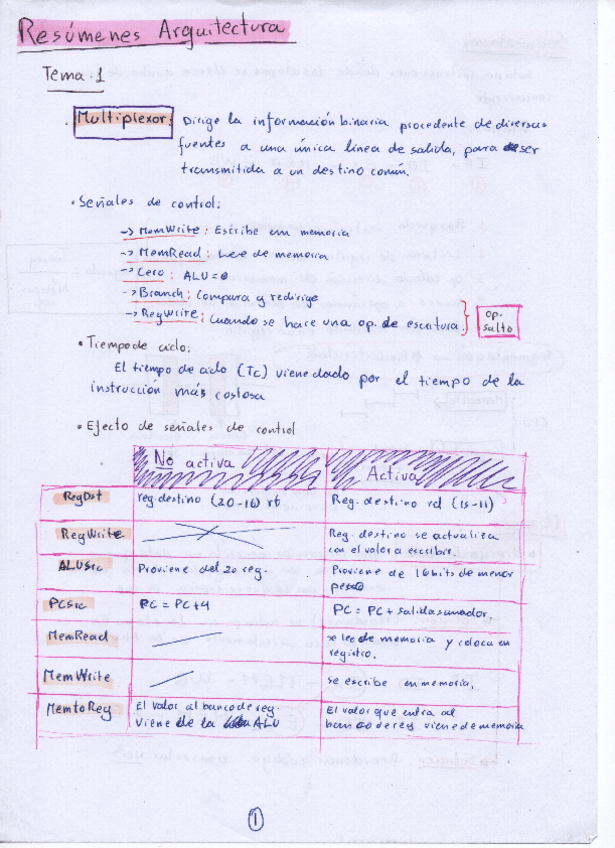 Resúmenes Arquitectura
Tema.1
• Multiplexor: Dirige la información binaria procedente de diversas
fuentes a una única linea de salida, para ser
transmitida a un destino común.
• Señales de control:
-> MemWrite: Escribe en memoria
-> MemRead: Lee de memoria
-> Cero: ALU=0
-> Branch: Compara y redirige
-> RegWrite: Cuando se hace una op. de escritura. } op. salto
• Tiempo de ciclo:
El tiempo de ciclo (Tc) viene dado por el tiempo de la
instrucción más costosa
• Efecto de señales de control
No activa Activa
RegDst reg.destino (20-16) rt Reg.destino rd (15-11)
RegWrite Reg.destino se actualiza
con el valor a escribir.
ALUSrc Proviene del 2o reg. Proviene de 16 bits de menor
peso
PCSrc PC = PC+4 PC = PC + salida sumador.
MemRead se lee de memoria y coloca en
registro.
MemWrite se escribe en memoria.
MemtoReg El valor al banco de reg. El valor que entra al
viene de la ALU banco de reg viene de memoria
1